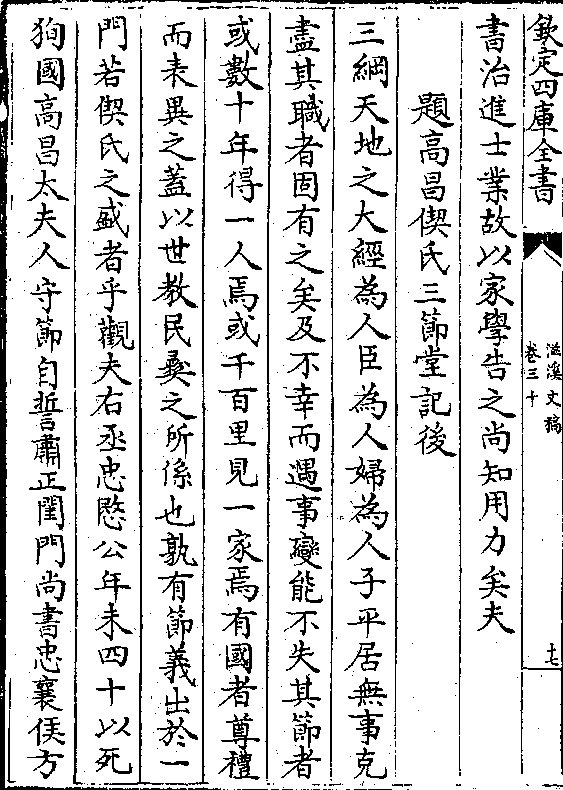 欽定四庫全書
滋溪文稿
卷三十
十七
書治進士業故以家學告之尚知用力矣夫
題高昌偰氏三節堂記後
三綱天地之大經為人臣為人婦為人子平居無事克
盡其職者固有之矣及不幸而遇事變能不失其節者
或數十年得一人焉或千百里見一家焉有國者尊禮
而表異之蓋以世教民彝之所係也孰有節義出於一
門若偰氏之盛者乎觀夫右丞忠愍公年未四十以死
狥國高昌太夫人守節自誓肅正閨門尚書忠襄侯方